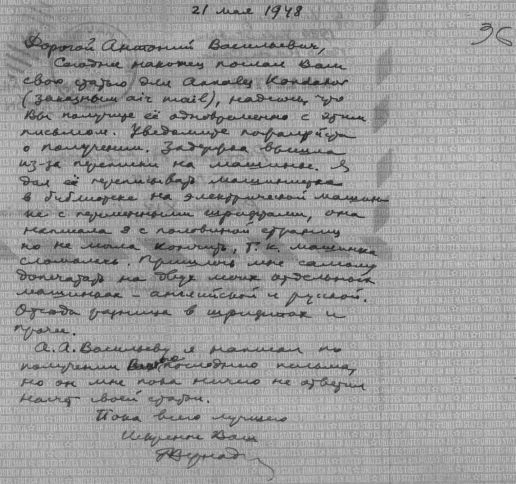 21 мая 1948
36
Дорогой Антоний Васильевич,
Сегодня наконец послал Вам
свою статью для
(заказным air mail), надеюсь, что
Вы получите её одновременно с этим
письмом. Уведомите пожалуйста
о получении. Задержка вышла
из-за переписки на машинке. Я
дал её переписывать машинистке
в библиотеке на электрической машинке
с переменными шрифтами, она
написала 8 с половиной страниц
но не могла кончить, т.к. машинка
сломалась. Пришлось мне самому
допечатать на двух моих отдельных
машинках – английской и русской.
Отсюда разница в шрифтах и
прочем.
А.А. Васильеву я написал по
получении последнего письма,
но он мне пока ничего не ответил
насчет своей статьи.
Пока всего лучшего
Искренне Ваш